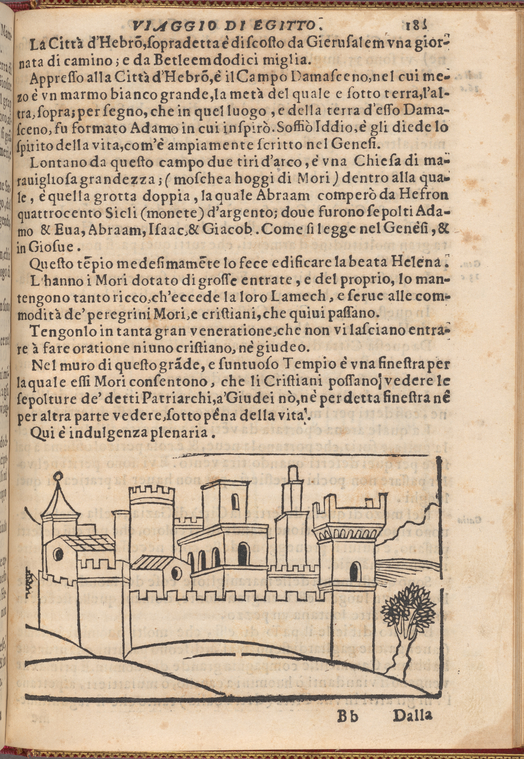 VIAGGIO DI EGITTO. 181
La Città d'Hebrõ, sopradetta è discosto da Gierusalem vna gior-
nata di camino; e da Betleem dodici miglia.
Appresso alla Città d'Hebrõ, è il Campo Damasceno, nel cui me-
zo è vn marmo bianco grande, la metà del quale e sotto terra, l'al-
tra, sopra; per segno, che in quel luogo, e della terra d'esso Dama-
sceno, fu formato Adamo in cui inspirò. Soffiò Iddio, e gli diede lo
spirito della vita, com'è ampiamente scritto nel Genesi.
Lontano da questo campo due tiri d'arco, è vna Chiesa di ma-
rauigliosa grandezza; (moschea hoggi di Mori) dentro alla qua-
le, è quella grotta doppia, la quale Abraam comperò da Hefron
quattrocento Sicli (monete) d'argento; doue furono sepolti Ada-
mo & Eua, Abraam, Isaac, & Giacob. Come si legge nel Genesi, &
in Giosue.
Questo tẽpio medesimamẽte lo fece edificare la beata Helena.
L'hanno i Mori dotato di grosse entrate, e del proprio, lo man-
tengono tanto ricco, ch'eccede la loro Lamech, e serue alle com-
modità de' peregrini Mori, e cristiani, che quiui passano.
Tengonlo in tanta gran veneratione, che non vi lasciano entra-
re à fare oratione niuno cristiano, nè giudeo.
Nel muro di questo grãde, e suntuoso Tempio è vna finestra per
la quale essi Mori consentono, che li Cristiani possano, vedere le
sepolture de' detti Patriarchi, a' Giudei nò, nè per detta finestra nè
per altra parte vedere, sotto pena della vita.
Qui è indulgenza plenaria.
Bb Dalla